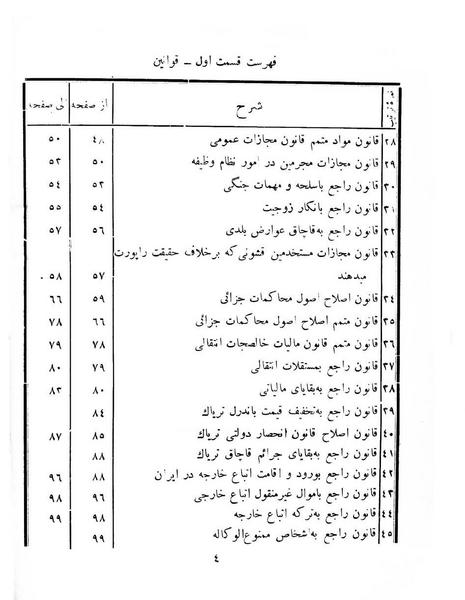 فهرست قسمت اول ـ قوانین
نمرهٔ ترتیب شرح از صفحه الی صفحه
۲۸ قانون مواد متمم قانون مجازات عمومی ۴۸ ۵۰
۲۹ قانون مجازات مجرمین در امور نظام وظیفه ۵۰ ۵۲
۳۰ قانون راجع باسلحه و مهمات جنگی ۵۲ ۵۴
۳۱ قانون راجع بانکار زوجیت ۵۴ ۵۵
۳۲ قانون راجع به‌قاچاق عوارض بلدی ۵۶ ۵۷
۳۳ قانون مجازات مستخدمین قشونی که برخلاف حقیقت راپورت
میدهند ۵۷ ۵۸
۳۴ قانون اصلاح اصول محاکمات جزائی ۵۹ ۶۶
۳۵ قانون متمم اصلاح اصول محاکمات جزائی ۶۶ ۷۸
۳۶ قانون متمم قانون مالیات خالصجات انتقالی ۷۸ ۷۹
۳۷ قانون راجع بمستقلات انتقالی ۷۹ ۸۰
۳۸ قانون راجع به‌بقایای مالیاتی ۸۰ ۸۳
۳۹ قانون راجع به‌تخفیف قیمت باندرل تریاك ۸۴
۴۰ قانون اصلاح قانون انحصار دولتی تریاك ۸۵ ۸۷
۴۱ قانون راجع به‌بقایای جرائم قاچاق تریاك ۸۸
۴۲ قانون راجع بورود و اقامت اتباع خارجه در ایران ۸۸ ۹۶
۴۳ قانون راجع باموال غیرمنقول اتباع خارجی ۹۶ ۹۸
۴۴ قانون راجع به‌ترکه اتباع خارجه ۹۸ ۹۹
۴۵ قانون راجع به‌اشخاص ممنوع‌الوکاله ۹۹
۴